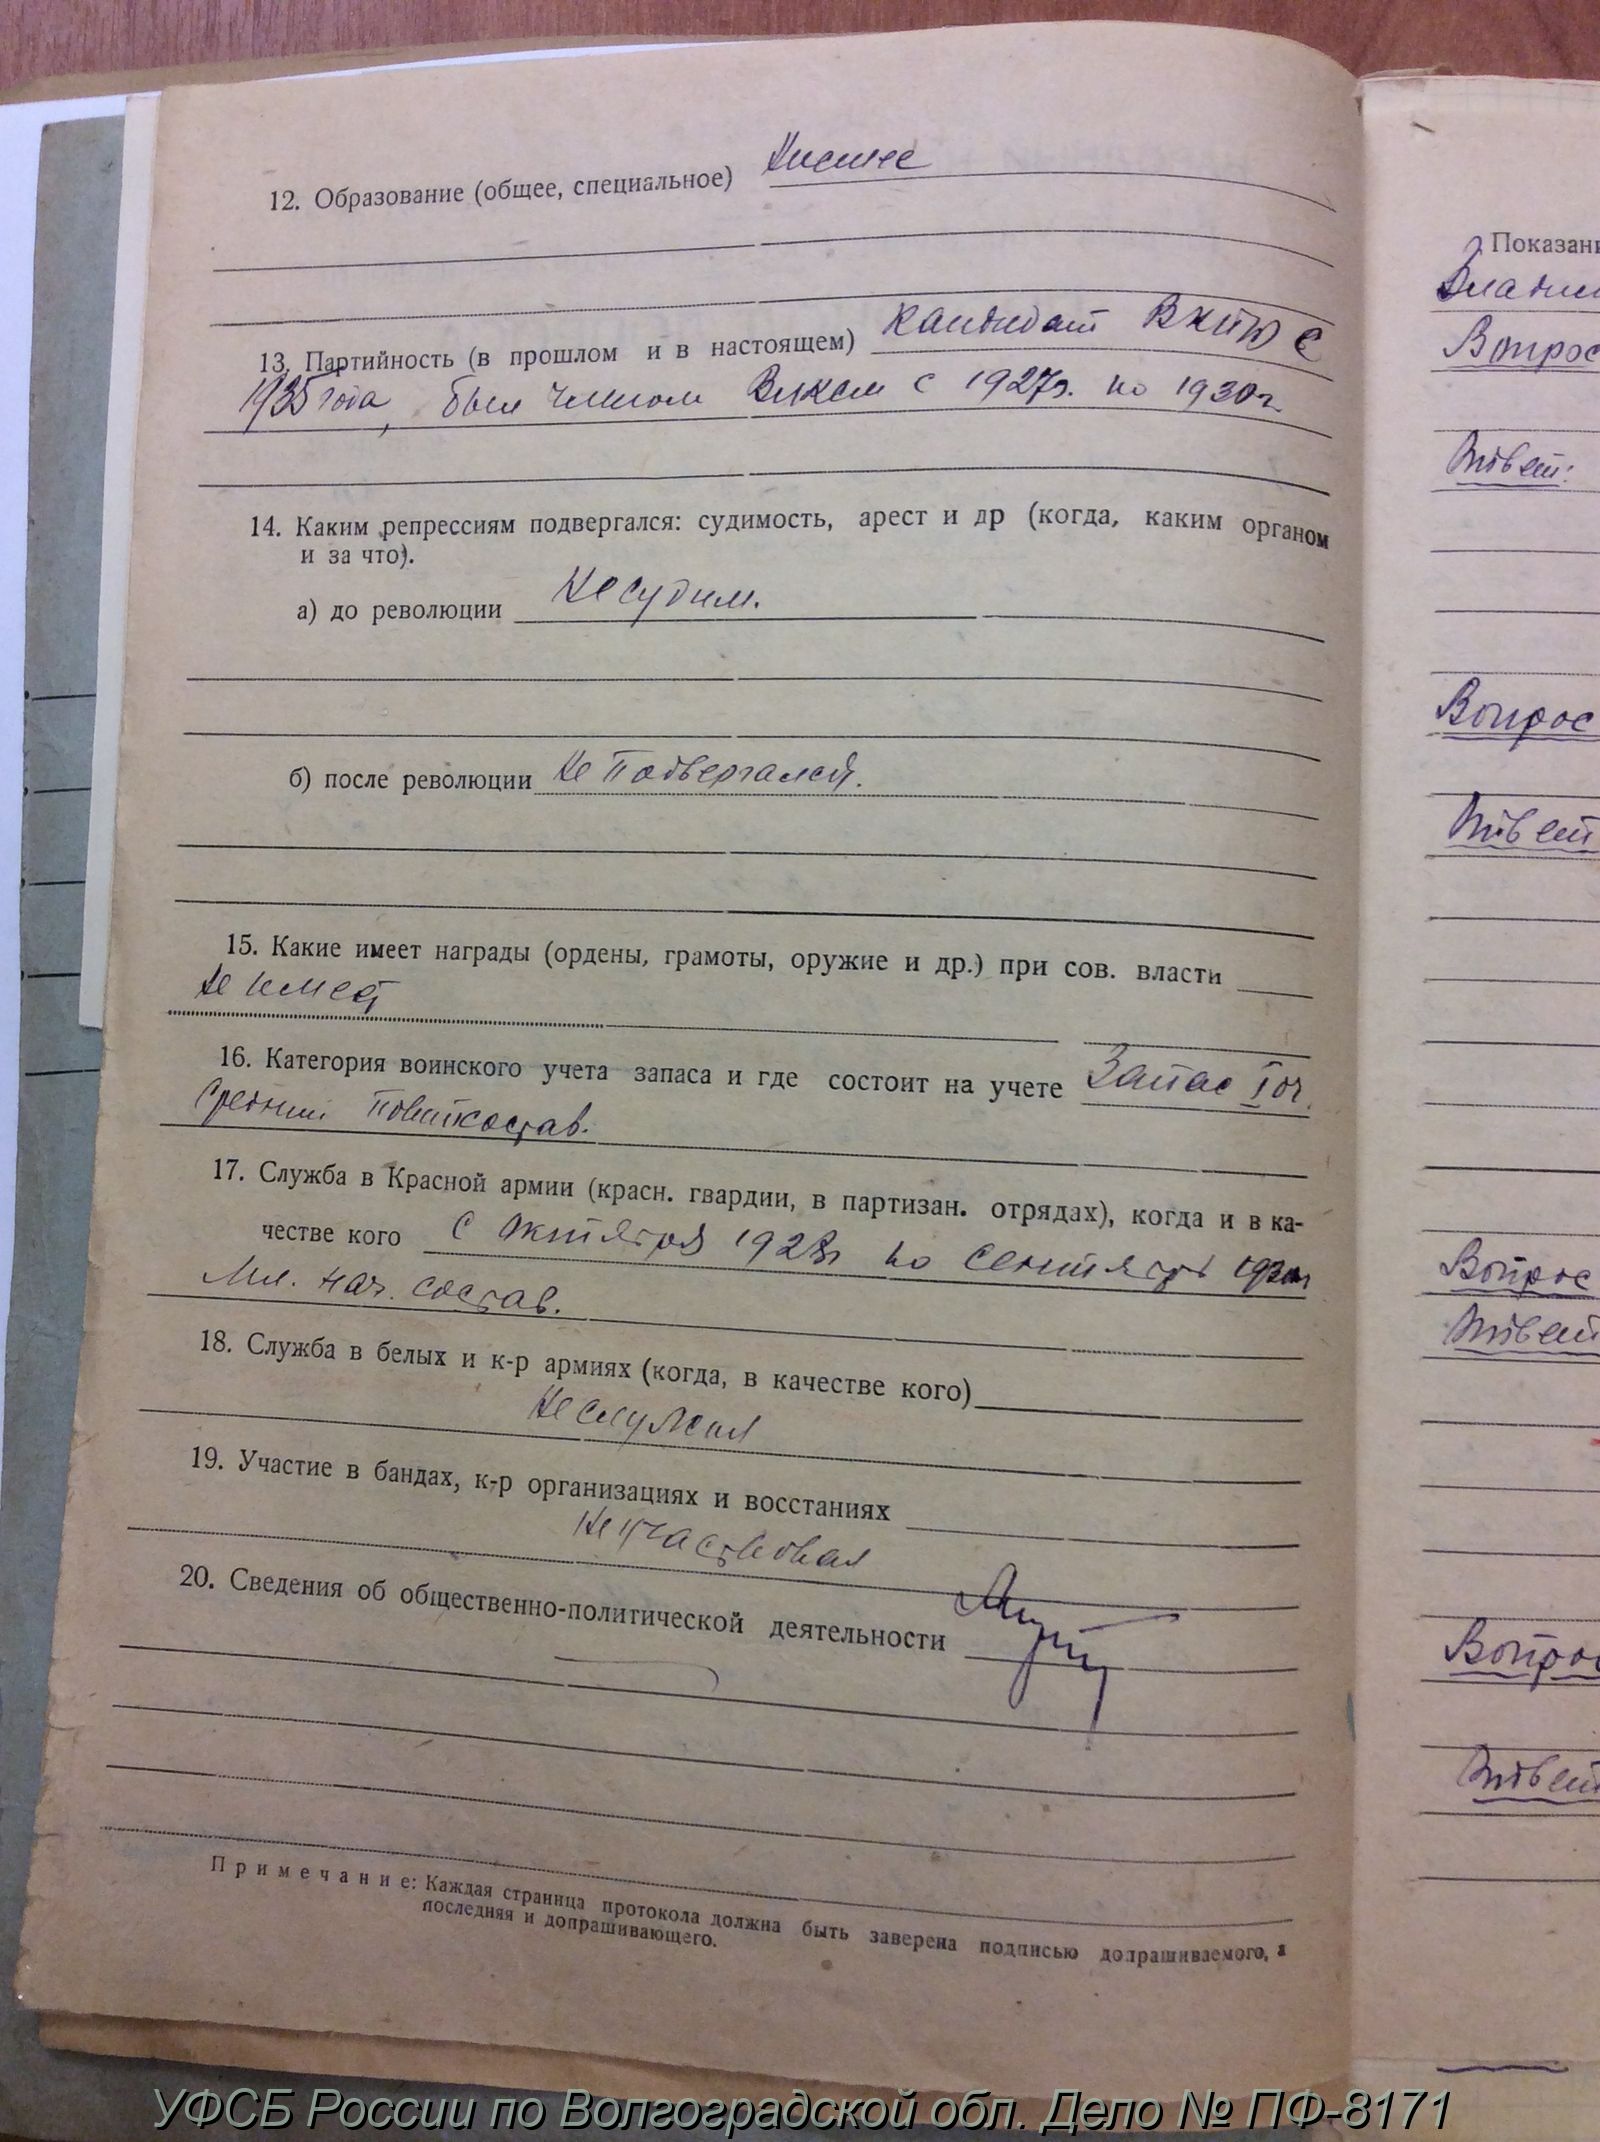 12. Образование (общее, специальное) Низшее
13. Партийность (в прошлом и в настоящем) кандидат ВКП(б) с
1935 года, был членом ВЛКСМ с 1927г. по 1930г
14. Каким репрессиям подвергался: судимость, арест и др (когда, каким органом
и за что).
а) до революции Не судим.
б) после революции Не подвергался.
15. Какие имеет награды (ордены, грамоты, оружие и др.) при сов. власти
Не имеет
16. Категория воинского учета запаса и где состоит на учете Запас I оч.
Средний политсостав.
17. Служба в Красной армии (красн. гвардии, в партизан. отрядах), когда и в ка-
честве кого с октября 1928г по сентябрь 1930г
Мл. нач. состав.
18. Служба в белых и к-р армиях (когда, в качестве кого)
Не служил
19. Участие в бандах, к-р организациях и восстаниях
Не участвовал
20. Сведения об общественно-политической деятельности
Примечание: Каждая страница протокола должна быть заверена подписью допрашиваемого, а
последняя и допрашивающего.
Показани
Вопрос
Ответ:
Вопрос
Ответ
Вопрос
Ответ
Вопрос
Ответ
УФСБ России по Волгоградской обл. Дело № ПФ-8171